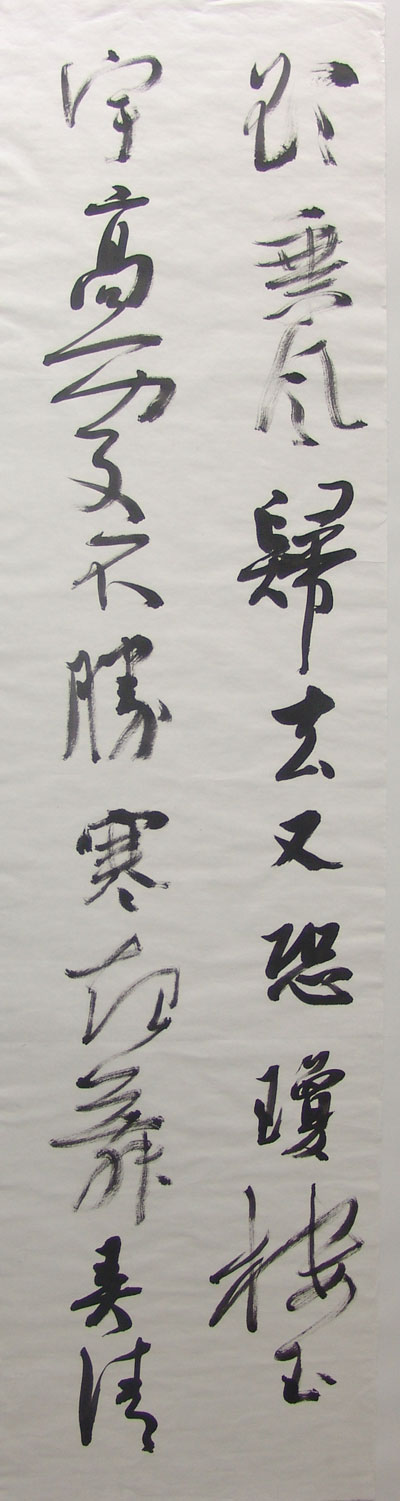 欲乘風歸去又恐瓊樓玉
宇高處不勝寒起舞弄清